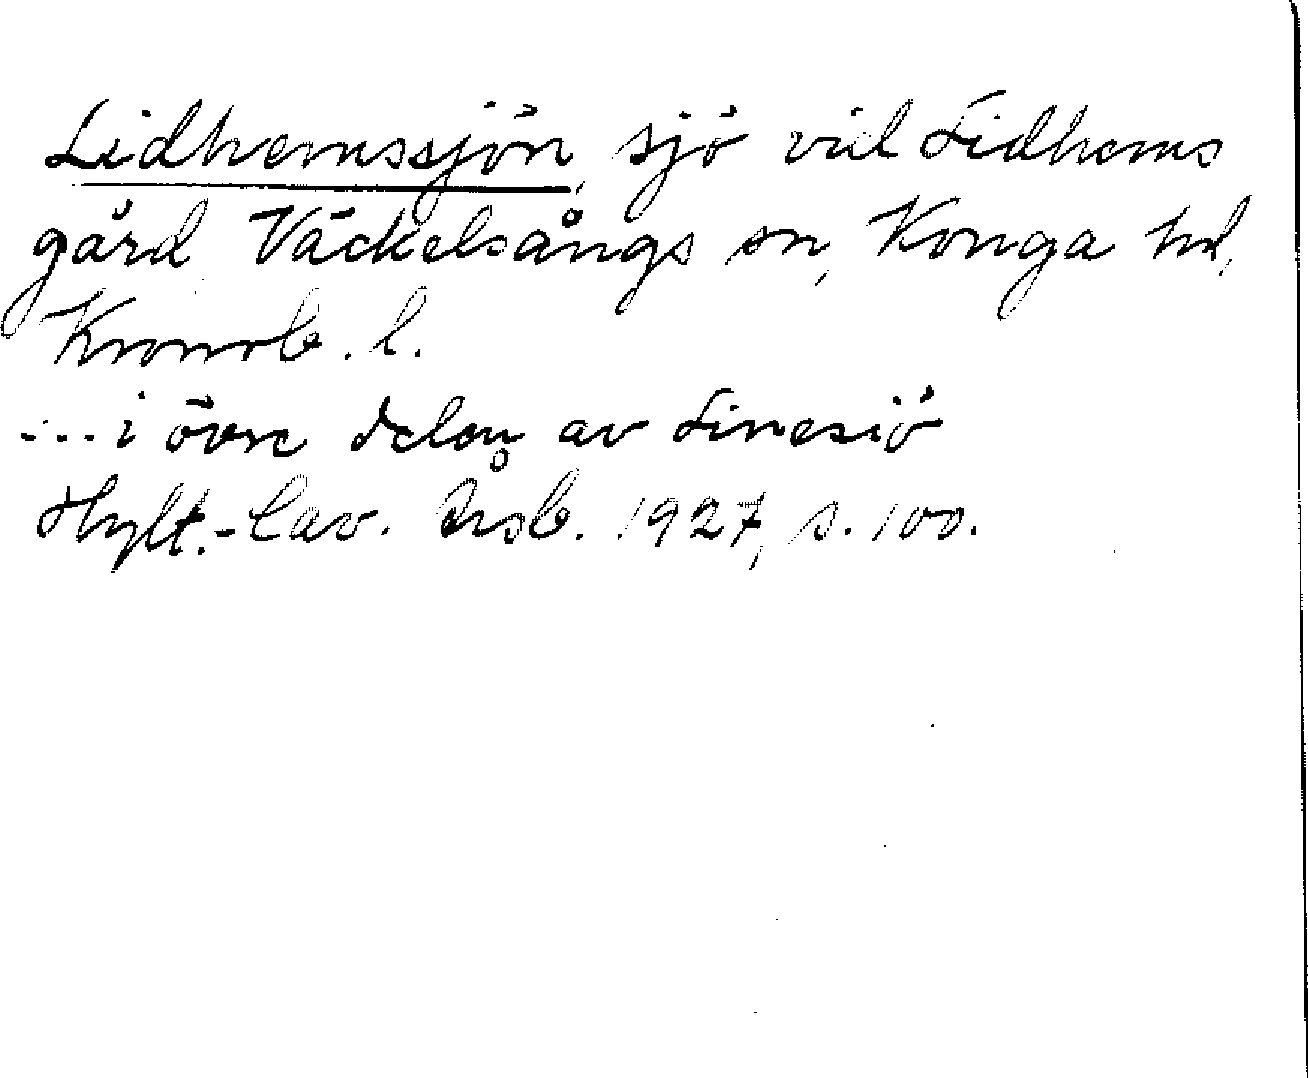 Lidhemssjön, sjö vid Lidhems
gård, Väckelsångs sn, Konga hd,
Kronob. l.
... i övre delen av Linesiö
Hylt.-Cav. Årsb. 1927, s. 100.